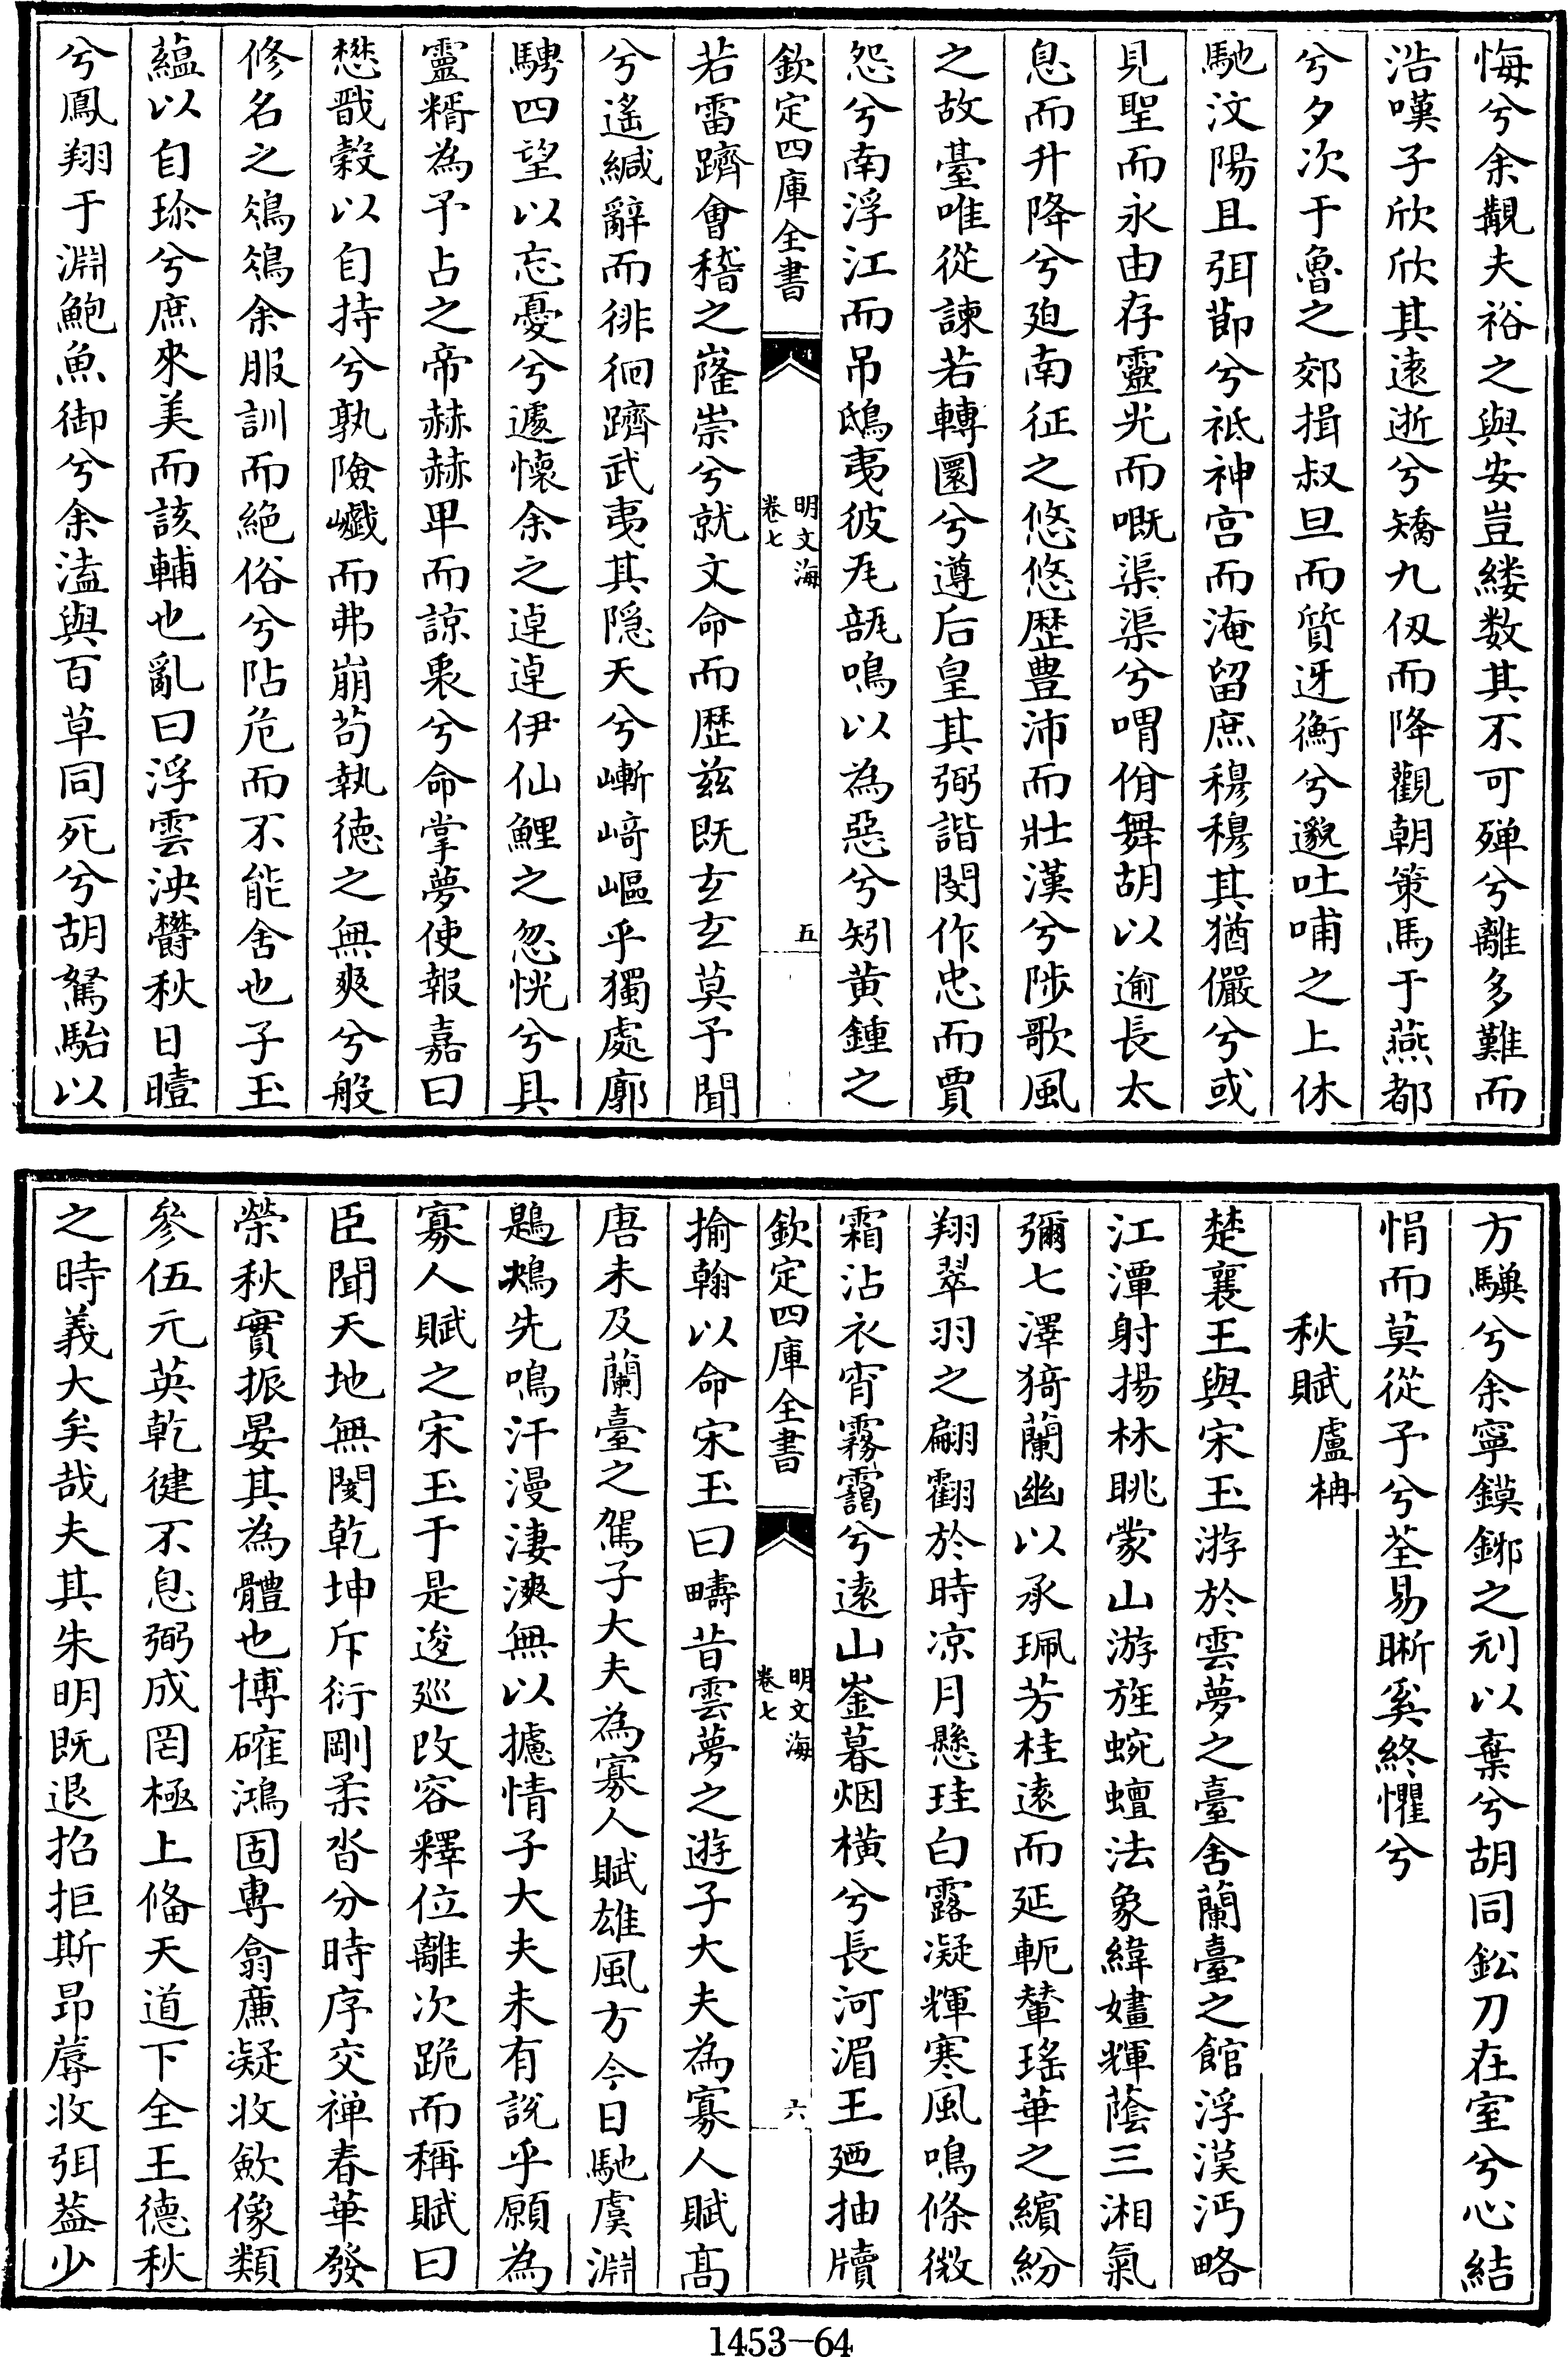 悔兮余覯夫裕之與安豈縷数其不可殫兮離多難而
浩嘆子欣欣其逺逝兮矯九仭而降觀朝策馬于燕都
兮夕次于魯之郊揖叔旦而質迓衡兮邈吐哺之上休
馳汶陽且弭莭兮祗神宫而淹留庶穆穆其猶儼兮或
見聖而永由存靈光而嘅渠渠兮喟佾舞胡以逾長太
息而升降兮廹南征之悠悠歴豊沛而壯漢兮陟歌風
之故臺唯從諫若轉圜兮遵后皇其弼諧閔作忠而賈
怨兮南浮江而吊鴟夷彼㼚瓿鳴以為惡兮矧黄鍾之
欽定四庫全書
明文海
卷七
五
若雷躋會稽之嶐崇兮就文命而歴兹既玄玄莫予聞
兮遙緘辭而徘徊躋武夷其隠天兮嶄﨑嶇乎獨處廓
騁四望以忘憂兮遽懷余之逴逴伊仙鯉之忽恍兮具
靈糈為予占之帝赫赫卑而諒衷兮命掌夢使報嘉曰
懋戩榖以自持兮孰險巇而弗崩苟執徳之無爽兮般
修名之鴒鴒余服訓而絶俗兮阽危而不能舍也子玉
藴以自珍兮庶來美而該輔也亂曰浮雲泱欝秋日曀
兮鳳翔于淵鮑魚御兮余溘與百草同死兮胡駑駘以
方驥兮余寧鏌鋣之刓以棄兮胡同鈆刀在室兮心結
悁而莫從予兮荃易晣奚終懼兮
秋賦盧柟
楚襄王與宋玉游於雲夢之臺舍蘭臺之館浮漢沔略
江潭射揚林眺蒙山游旌蜿蟺法象緯嫿輝蔭三湘氣
彌七澤猗蘭幽以承珮芳桂逺而延軛輦瑤華之繽紛
翔翠羽之翩翻於時凉月懸珪白露凝輝寒風鳴條微
霜沾衣宵霧靄兮逺山崟暮烟橫兮長河湄王廼抽牘
欽定四庫全書
明文海
卷七
六
揄翰以命宋玉曰疇昔雲夢之遊子大夫為寡人賦髙
唐未及蘭臺之駕子大夫為寡人賦雄風方今日馳虞淵
鶗鴂先鳴汗漫淒㵳無以攄情子大夫未有説乎願為
寡人賦之宋玉于是逡廵改容釋位離次跪而稱賦曰
臣聞天地無閡乾坤斥衍剛柔沓分時序交禅春華發
榮秋實振晏其為體也博確鴻固専翕亷凝收歛像類
參伍元英乾健不息弼成罔極上偹天道下全王德秋
之時義大矣哉夫其朱明既退招拒斯昂蓐收弭葢少
1453-64